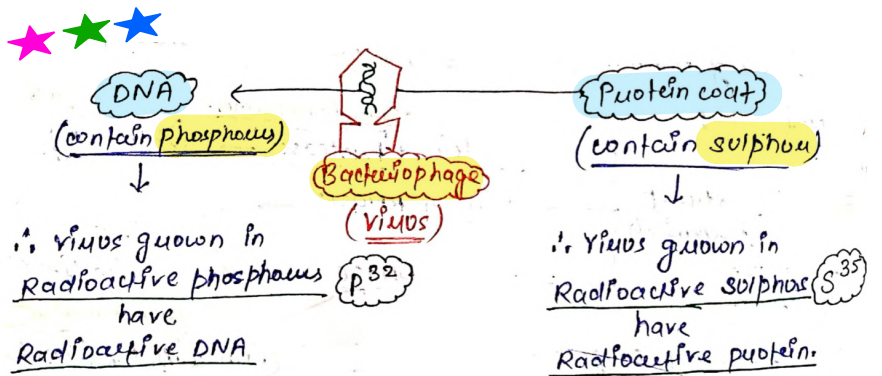 DNA
(contain phosphorus)
↓
∴ virus grown in
Radioactive phosphorus
P32
have
Radioactive DNA
Bacteriophage
(virus)
Protein coat
(contain sulphur)
↓
∴ virus grown in
Radioactive sulphur
S35
have
Radioactive protein.